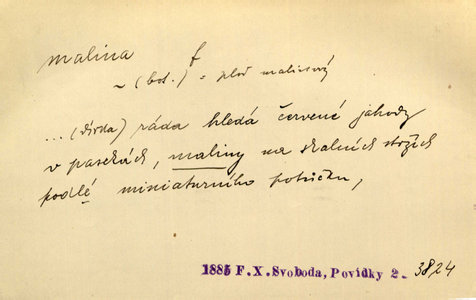 malina f
~ (bot.) = plod malinový
... (Firda) ráda hledá červené jahody
v pasekách, maliny na skalních stržích
podlé miniaturního potůčku,
1885 F. X. Svoboda, Povídky 2. 3824